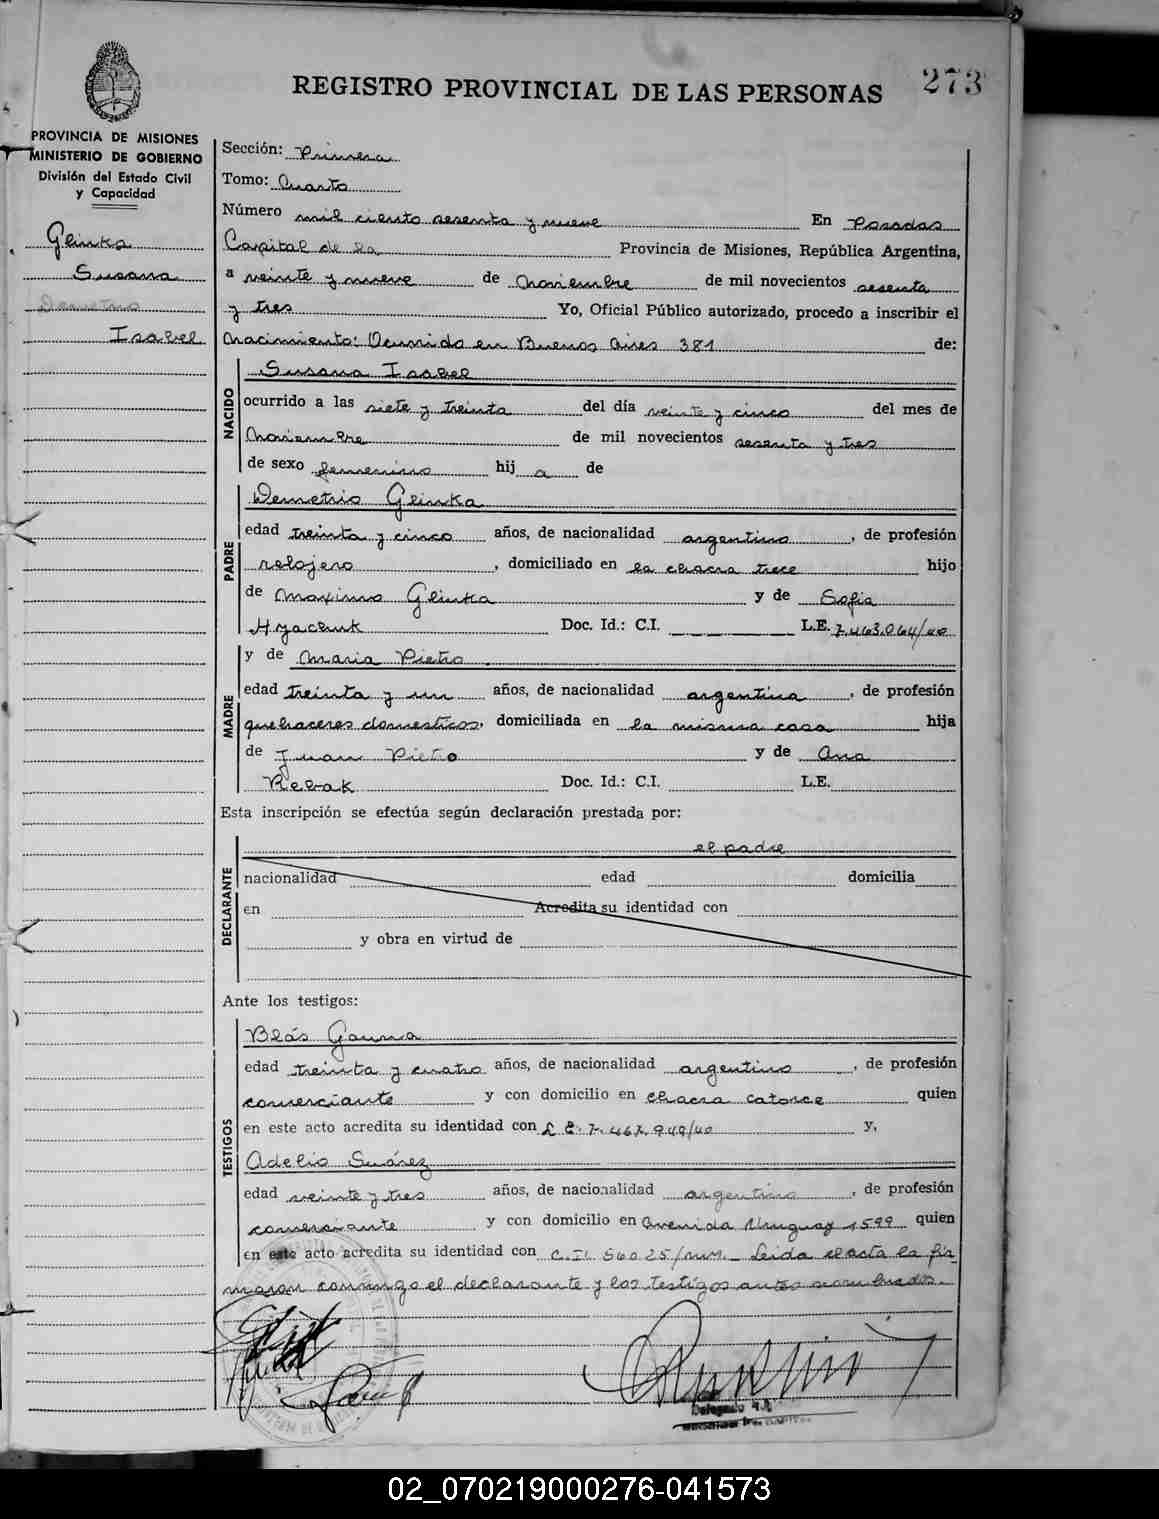 REGISTRO PROVINCIAL DE LAS PERSONAS
273
PROVINCIA DE MISIONES
MINISTERIO DE GOBIERNO
División del Estado Civil
y Capacidad
Glinka
Susana
Demetrio
Isabel
Sección: Primera
Tomo: Cuarto
Número mil ciento sesenta y nueve En Posadas
Capital de la Provincia de Misiones, República Argentina,
a veinte y nueve de Noviembre de mil novecientos sesenta
y tres Yo, Oficial Público autorizado, procedo a inscribir el
Nacimiento: Ocurrido en Buenos Aires 381 de:
NACIDO
Susana Isabel
ocurrido a las siete y treinta del día veinte y cinco del mes de
Noviembre de mil novecientos sesenta y tres
de sexo femenino hij a de
PADRE
Demetrio Glinka
edad treinta y cinco años, de nacionalidad argentino, de profesión
relojero, domiciliado en la chacra trece hijo
de Maximo Glinka y de Sofia
Hyacenk Doc. Id.: C.I. L.E. 7.463.064/40
MADRE
y de Maria Pietro
edad treinta y un años, de nacionalidad argentina, de profesión
quehaceres domesticos, domiciliada en la misma casa hija
de Juan Pietro y de Ana
Rebak Doc. Id.: C.I. L.E.
Esta inscripción se efectúa según declaración prestada por:
DECLARANTE
el padre
nacionalidad edad domicilia
en Acredita su identidad con
y obra en virtud de
Ante los testigos:
TESTIGOS
Blás Gauna
edad treinta y cuatro años, de nacionalidad argentino, de profesión
comerciante y con domicilio en chacra catorce quien
en este acto acredita su identidad con L E. 7.467.949/40 y,
Adelio Suárez
edad veinte y tres años, de nacionalidad argentino, de profesión
comerciante y con domicilio en avenida Uruguay 1599 quien
en este acto acredita su identidad con C.I. 56025/mm. Leida el acta la fir
maron conmigo el declarante y los testigos antes nombrados.
Delegado
02_070219000276-041573